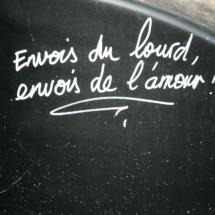 Envois du lourd,
envois de l'amour !